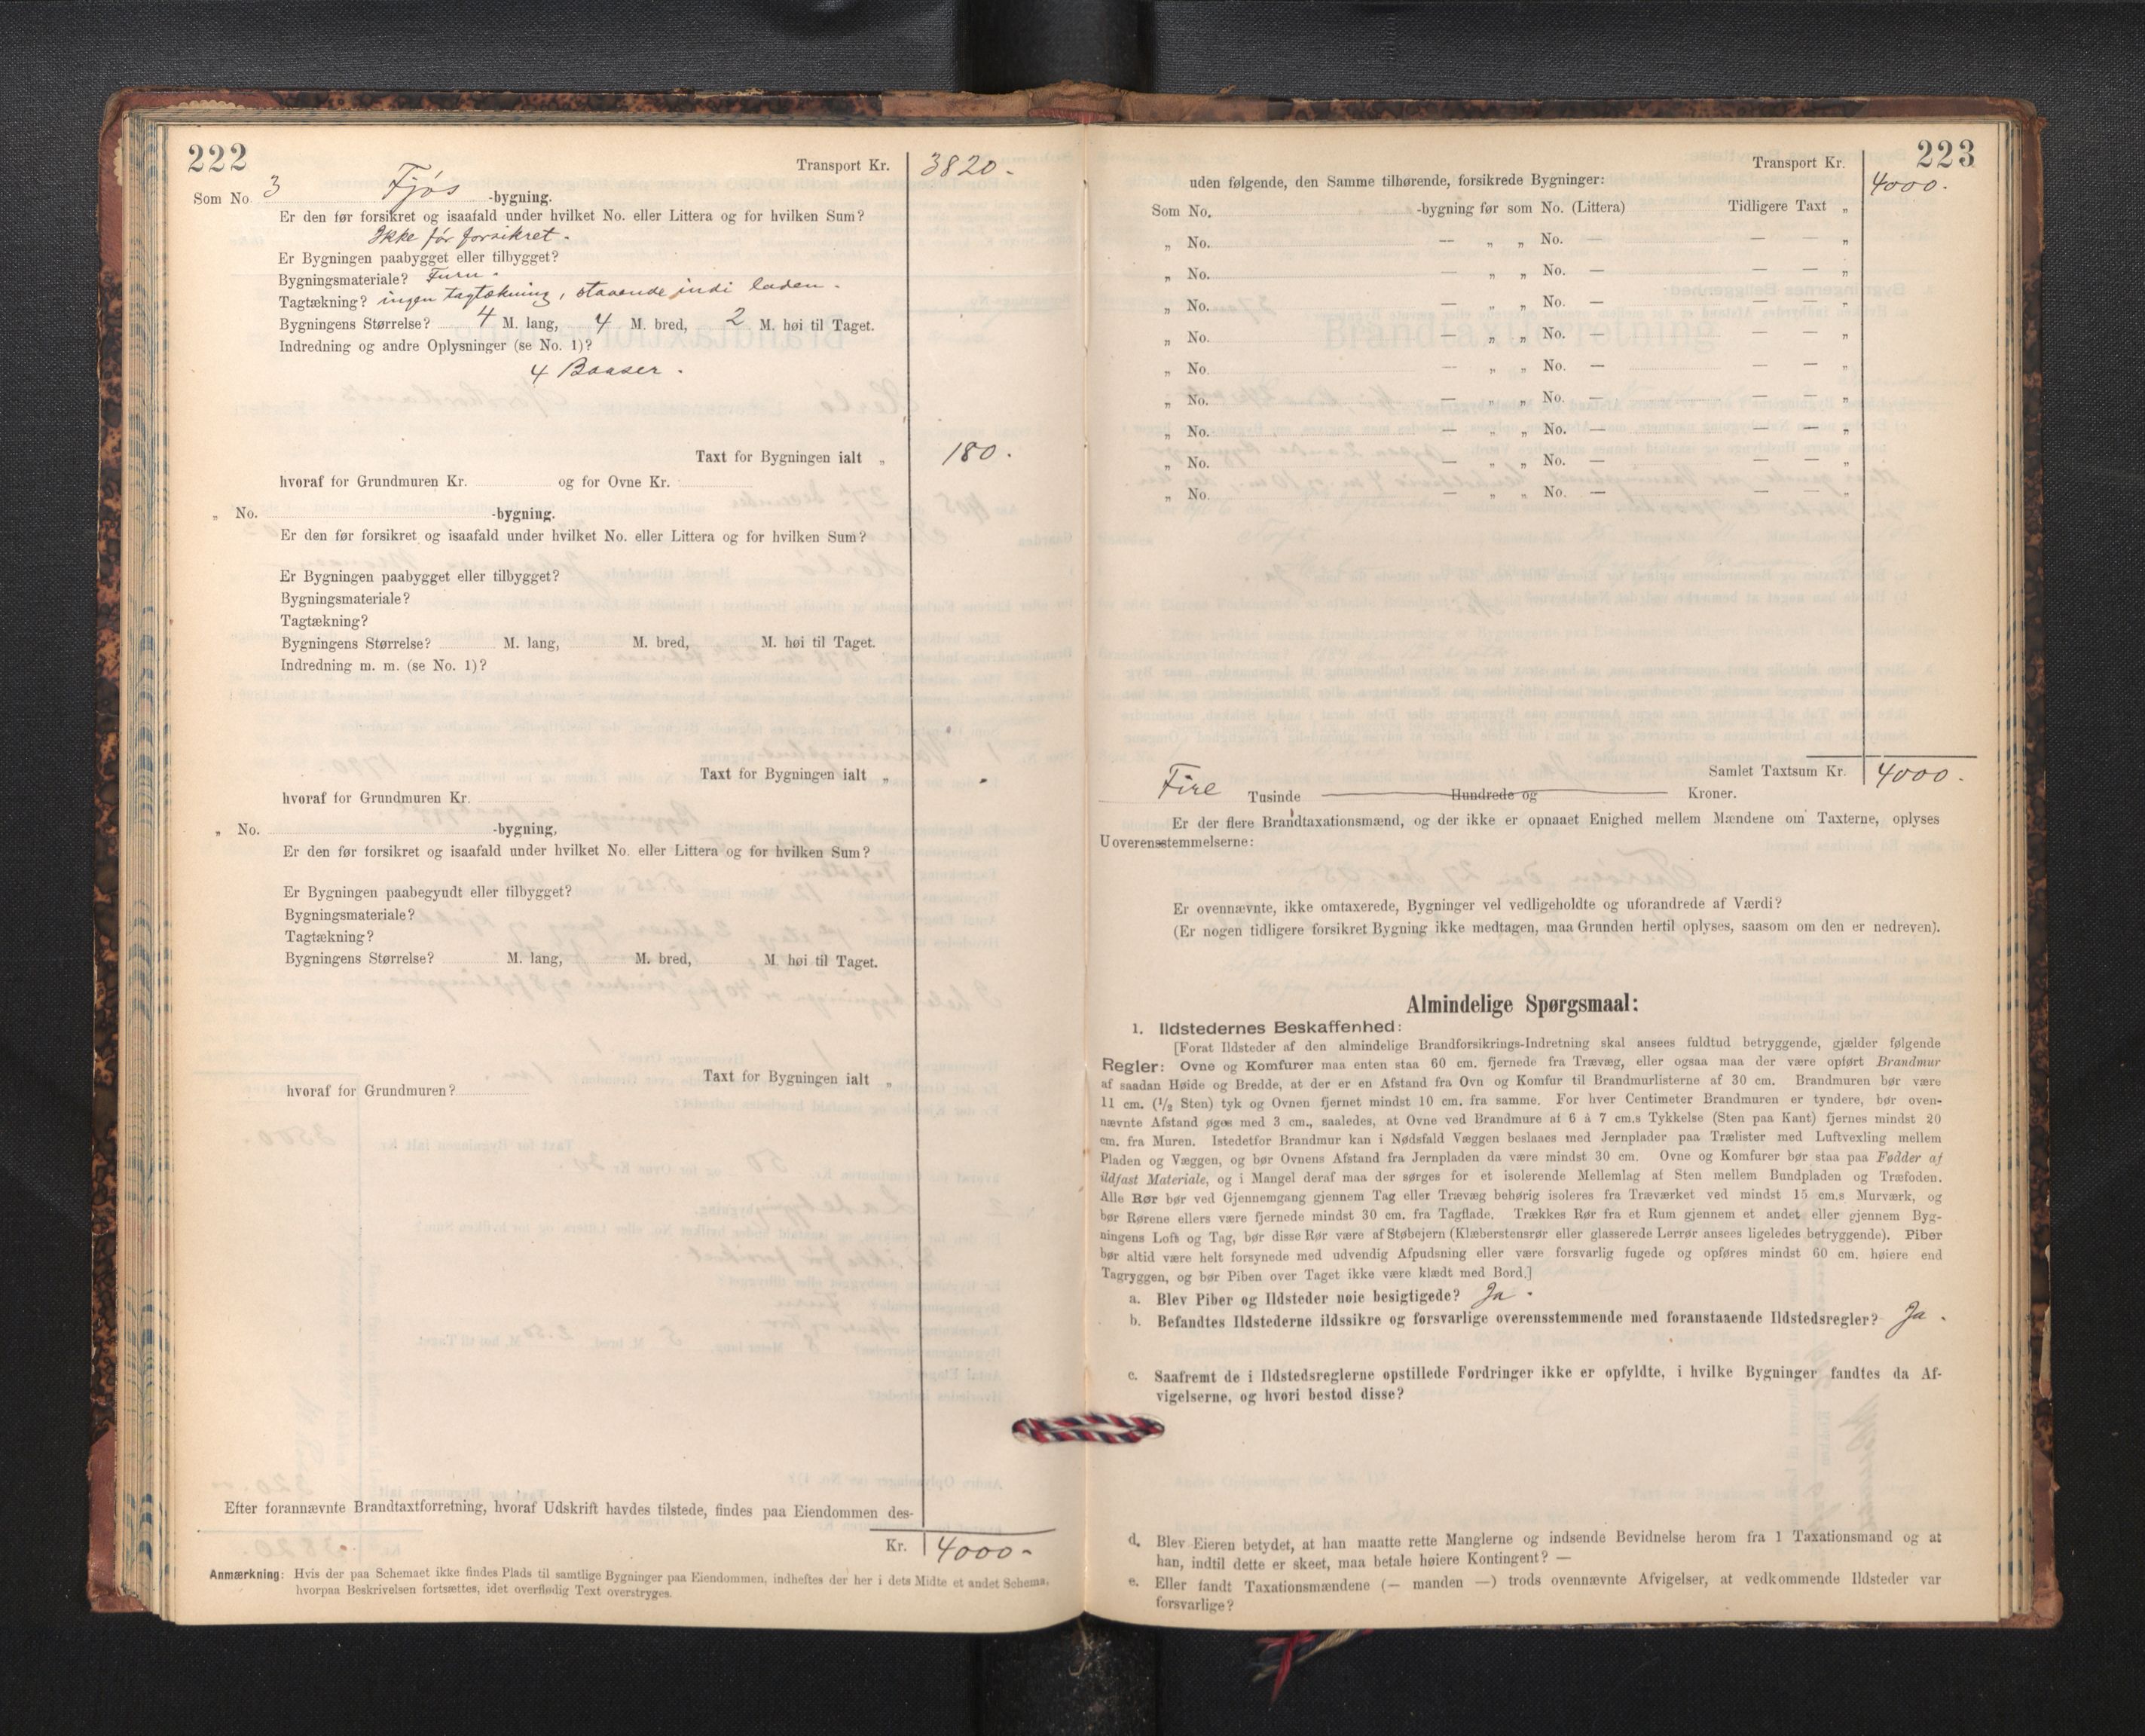 222
Transport Kr. 3820.
Som No. 3 Fjøs -bygning.
Er den før forsikret og isaafald under hvilket No. eller Littera og for hvilken Sum?
Ikke før forsikret.
Er Bygningen paabygget eller tilbygget?
Bygningsmateriale? Furu.
Tagtækning? ingen tagtækning, staaende indi laden.
Bygningens Størrelse? 4 M. lang, 4 M. bred, 2 M. høi til Taget.
Indredning og andre Oplysninger (se No. 1)?
4 Baaser.
Taxt for Bygningen ialt „ 180.
hvoraf for Grundmuren Kr. og for Ovne Kr.
„ No. -bygning.
Er den før forsikret og isaafald under hvilket No. eller Littera og for hvilken Sum?
Er Bygningen paabygget eller tilbygget?
Bygningsmateriale?
Tagtækning?
Bygningens Størrelse? M. lang, M. bred, M. høi til Taget.
Indredning m. m. (se No. 1)?
Taxt for Bygningen ialt „
hvoraf for Grundmuren Kr.
„ No. -bygning,
Er den før forsikret og isaafald under hvilket No. eller Littera og for hvilken Sum?
Er Bygningen paabegyudt eller tilbygget?
Bygningsmateriale?
Tagtækning?
Bygningens Størrelse? M. lang, M. bred, M. høi til Taget.
Taxt for Bygningen ialt „
hvoraf for Grundmuren?
Efter forannævnte Brandtaxtforretning, hvoraf Udskrift havdes tilstede, findes paa Eiendommen des-
Kr. 4000-
Anmærkning: Hvis der paa Schemaet ikke findes Plads til samtlige Bygninger paa Eiendommen, indheftes der her i dets Midte et andet Schema,
hvorpaa Beskrivelsen fortsættes, idet overflødig Text overstryges.
223
Transport Kr. 4000.
uden følgende, den Samme tilhørende, forsikrede Bygninger:
Som No. -bygning før som No. (Littera) Tidligere Taxt „
„ No. — „ „ No. — — — „
„ No. „ „ No. — — — „
„ No. — „ „ No. — — — „
„ No. — „ „ No. — — — „
„ No. — „ „ No. — — — „
„ No. — „ „ No. — — — „
„ No. — „ „ No. — — — „
„ No. — „ „ No. — — — „
„ No. — „ „ No. — — — „
Samlet Taxtsum Kr. 4000.
Fire Tusinde Hundrede og Kroner.
Er der flere Brandtaxationsmænd, og der ikke er opnaaet Enighed mellem Mændene om Taxterne, oplyses
Uoverensstemmelserne:
Er ovennævnte, ikke omtaxerede, Bygninger vel vedligeholdte og uforandrede af Værdi?
(Er nogen tidligere forsikret Bygning ikke medtagen, maa Grunden hertil oplyses, saasom om den er nedreven).
Almindelige Spørgsmaal:
1. Ildstedernes Beskaffenhed:
[Forat Ildsteder af den almindelige Brandforsikrings-Indretning skal ansees fuldtud betryggende, gjælder følgende
Regler: Ovne og Komfurer maa enten staa 60 cm. fjernede fra Trævæg, eller ogsaa maa der være opført Brandmur
af saadan Høide og Bredde, at der er en Afstand fra Ovn og Komfur til Brandmurlisterne af 30 cm. Brandmuren bør være
11 cm. (1/2 Sten) tyk og Ovnen fjernet mindst 10 cm. fra samme. For hver Centimeter Brandmuren er tyndere, bør oven-
nævnte Afstand øges med 3 cm., saaledes, at Ovne ved Brandmure af 6 à 7 cm.s Tykkelse (Sten paa Kant) fjernes mindst 20
cm. fra Muren. Istedetfor Brandmur kan i Nødsfald Væggen beslaaes med Jernplader paa Trælister med Luftvexling mellem
Pladen og Væggen, og bør Ovnens Afstand fra Jernpladen da være mindst 30 cm. Ovne og Komfurer bør staa paa Fødder af
ildfast Materiale, og i Mangel deraf maa der sørges for et isolerende Mellemlag af Sten mellem Bundpladen og Træfoden.
Alle Rør bør ved Gjennemgang gjennem Tag eller Trævæg behørig isoleres fra Træværket ved mindst 15 cm.s Murværk, og
bør Rørene ellers være fjernede mindst 30 cm. fra Tagflade. Trækkes Rør fra et Rum gjennem et andet eller gjennem Byg-
ningens Loft og Tag, bør disse Rør være af Støbejern (Klæberstensrør eller glasserede Lerrør ansees ligeledes betryggende). Piber
bør altid være helt forsynede med udvendig Afpudsning eller være forsvarlig fugede og opføres mindst 60 cm. høiere end
Tagryggen, og bør Piben over Taget ikke være klædt med Bord.]
a. Blev Piber og Ildsteder nøie besigtigede? Ja.
b. Befandtes Ildstederne ildssikre og forsvarlige overensstemmende med foranstaaende Ildstedsregler? Ja.
c. Saafremt de i Ildstedsreglerne opstillede Fordringer ikke er opfyldte, i hvilke Bygninger fandtes da Af-
vigelserne, og hvori bestod disse?
d. Blev Eieren betydet, at han maatte rette Manglerne og indsende Bevidnelse herom fra 1 Taxationsmand og at
han, indtil dette er skeet, maa betale høiere Kontingent? —
e. Eller fandt Taxationsmændene (— manden —) trods ovennævnte Afvigelser, at vedkommende Ildsteder var
forsvarlige?